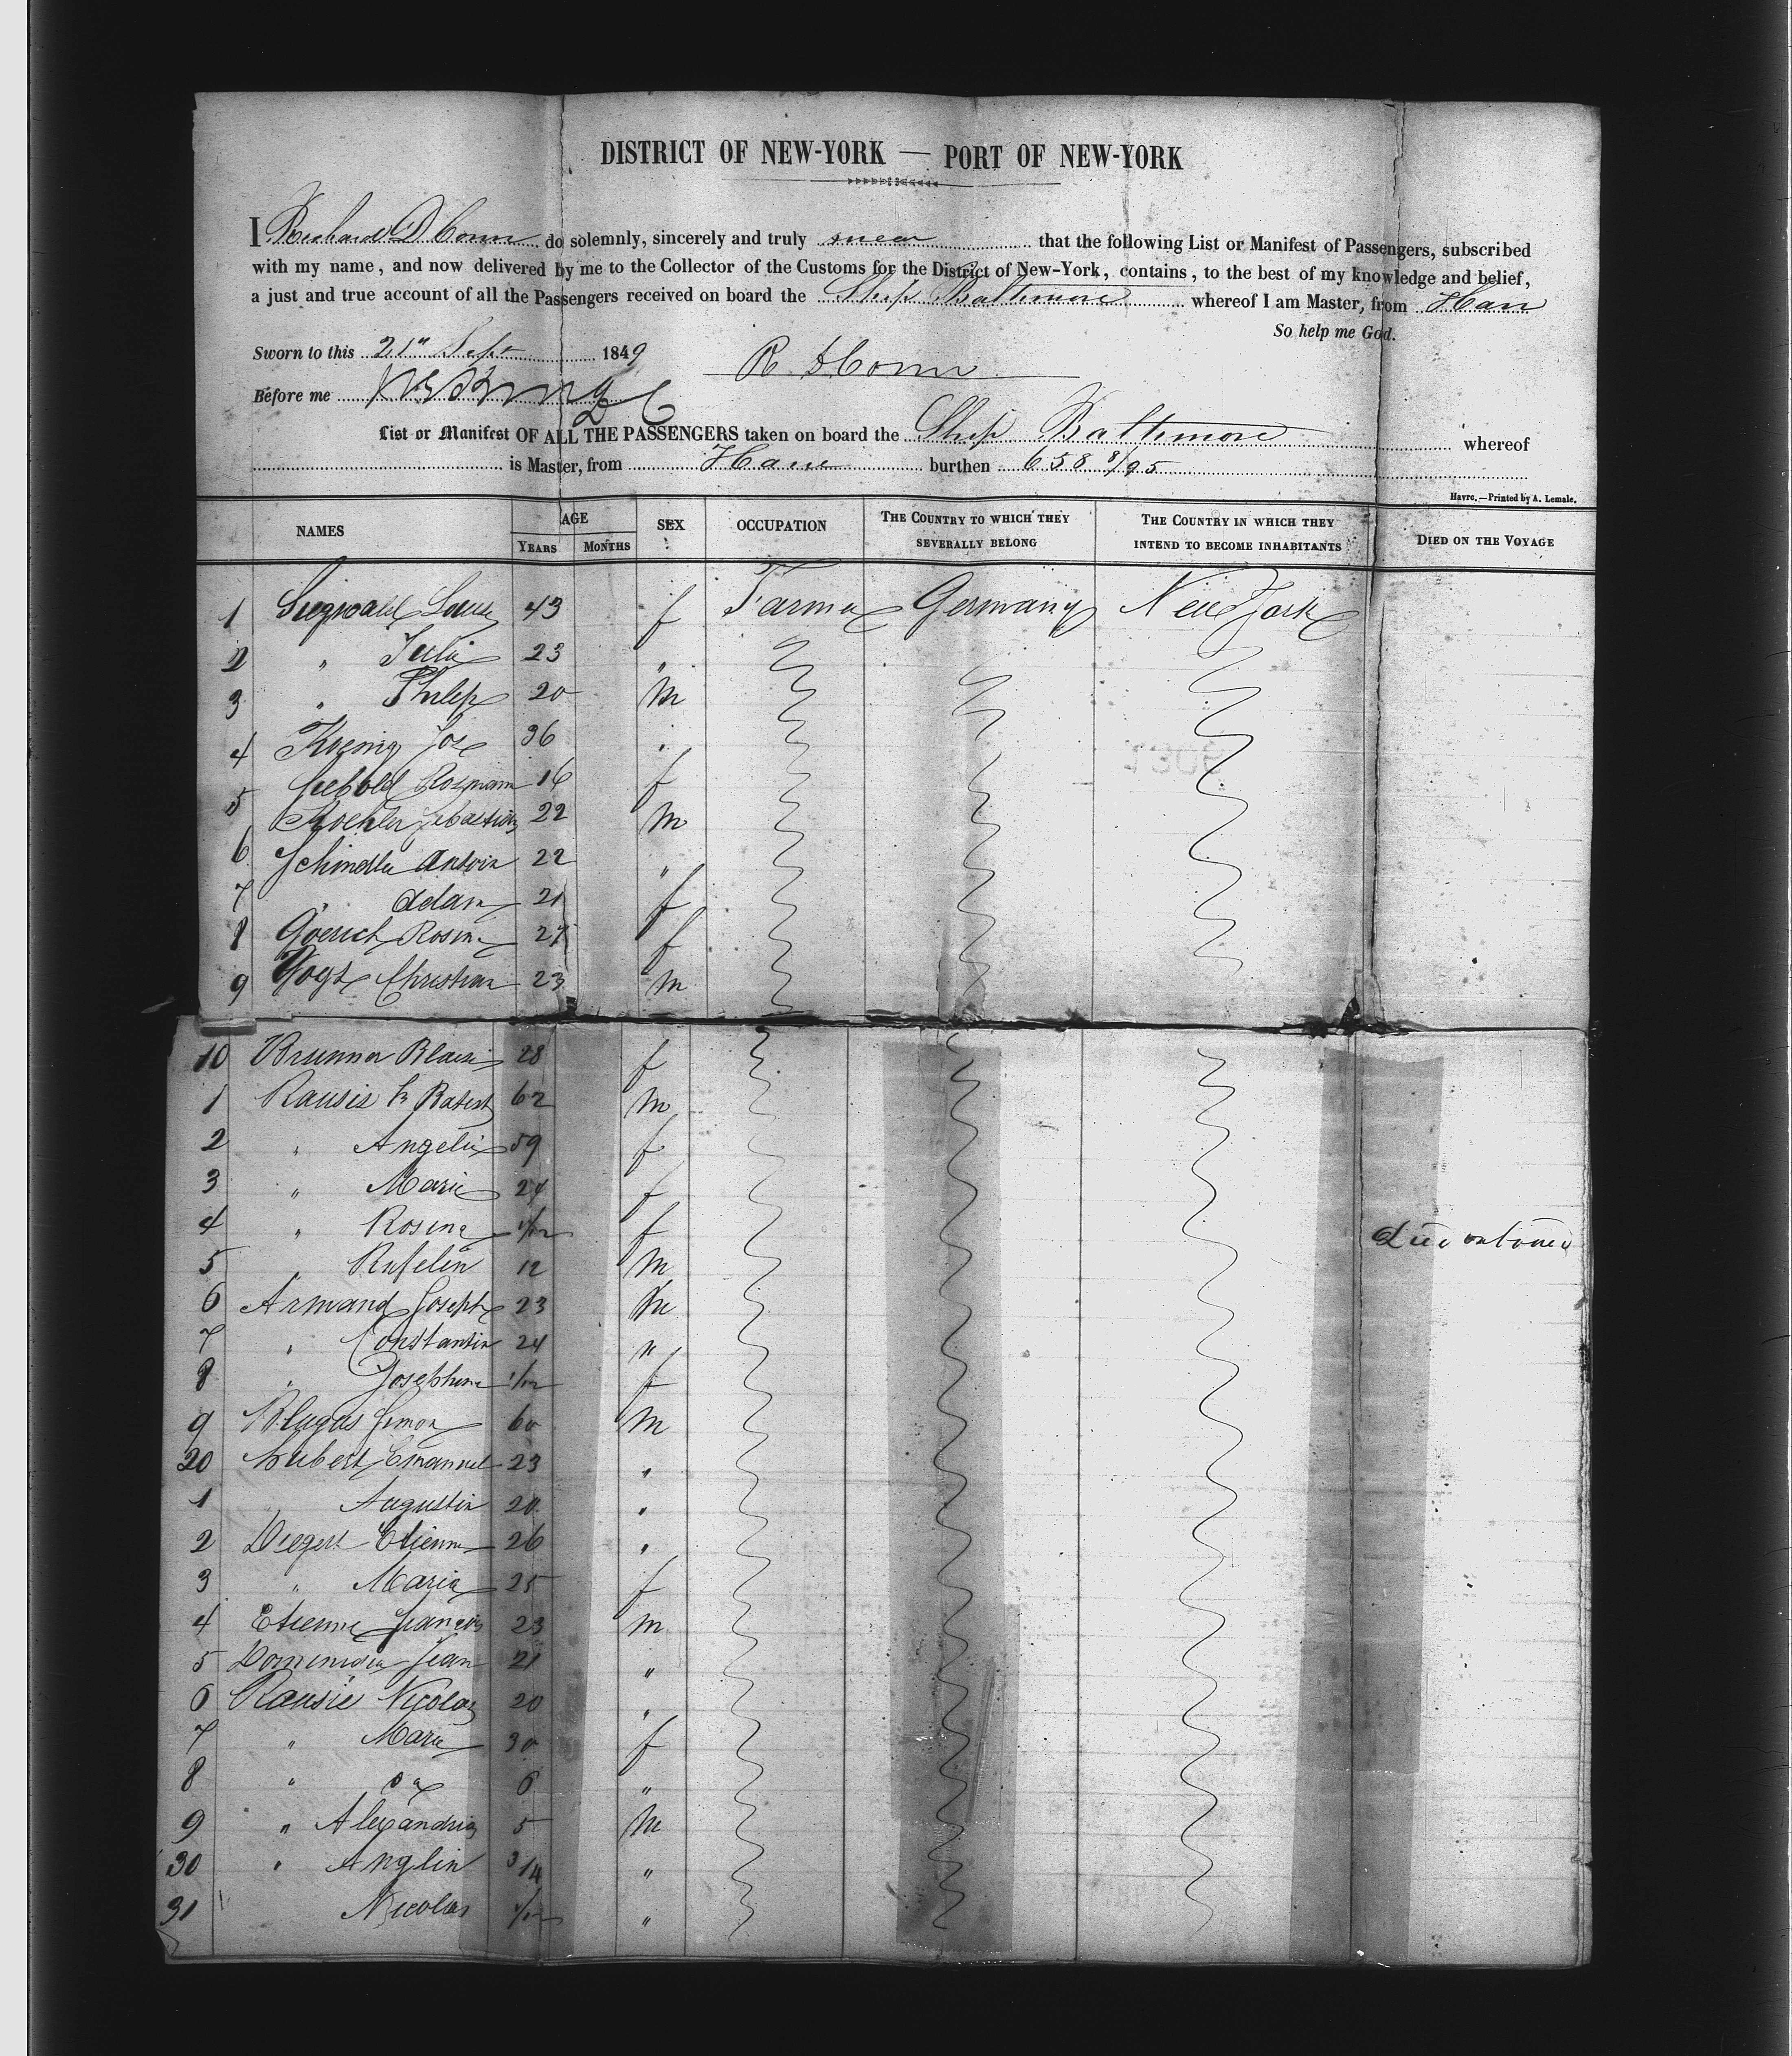 DISTRICT OF NEW-YORK — PORT OF NEW-YORK
I Richard D Conn do solemnly, sincerely and truly swear that the following List or Manifest of Passengers, subscribed
with my name, and now delivered by me to the Collector of the Customs for the District of New-York, contains, to the best of my knowledge and belief,
a just and true account of all the Passengers received on board the Ship Baltimore whereof I am Master, from Havre
So help me God.
Sworn to this 21st Sept 1849
R D Conn
Before me
List or Manifest OF ALL THE PASSENGERS taken on board the Ship Baltimore whereof
is Master, from Havre burthen 658 8/95
Havre.—Printed by A. Lemale.
NAMES AGE YEARS MONTHS SEX OCCUPATION THE COUNTRY TO WHICH THEY SEVERALLY BELONG THE COUNTRY IN WHICH THEY INTEND TO BECOME INHABITANTS DIED ON THE VOYAGE
1 Siegwald Louise 43 f Farmer Germany New York
2 " Julie 23 "
3 " Philip 20 m
4 Koenig Jos 36 "
5 16 f
Koehler Sebastian 22 m
6 Schindler Antoin 22 "
7 " Adam 21 f
8 Goerich Rosine 27 f
9 Vogt Christian 23 m
10 Brunner Blaise 28 f
1 Rausis 62 m
2 " Angelie 59 f
3 " Marie 24 f
4 " Rosina f
5 " Rufelin 12 m
6 Armand Joseph 23 m
7 " Constantin 24 "
8 " Josephine 1/12 f
9 Simon 60 m
20 Hubert Emanuel 23 "
1 " Augustin 20 "
2 Etienne 26 "
3 " Maria 25 f
4 Etienne Francois 23 m
5 Jean 21 "
6 Rausie Nicolas 20 "
7 " Marie 30 f
8 " 6 "
9 " Alexandria 5 m
30 " Anglin "
31 " Nicolas "